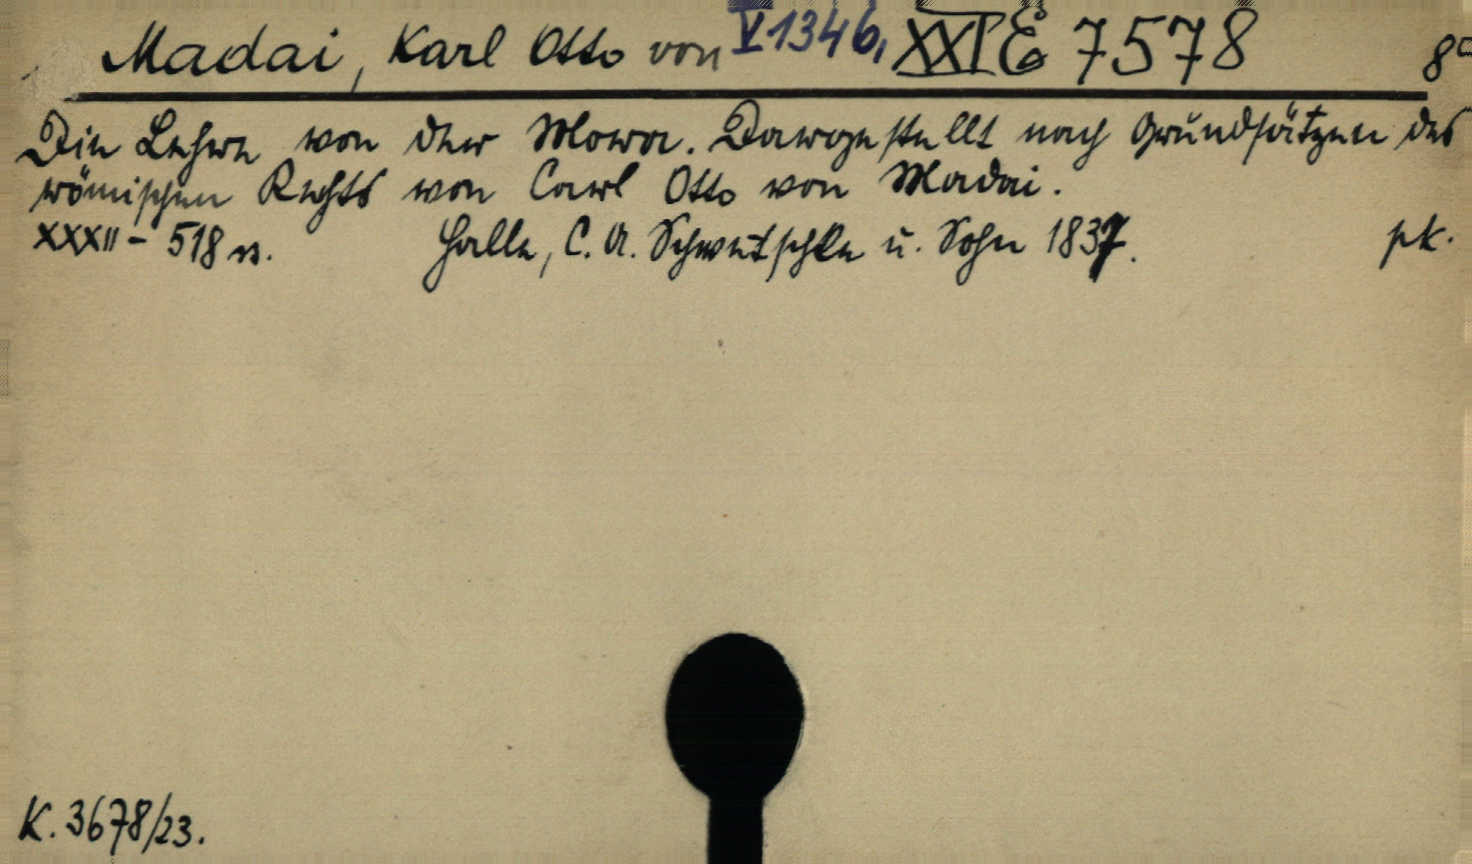 Madai, Karl Otto von V 1346, XXI E 7578 8°
Die Lehre von der Mora. Dargestellt nach Grundsätzen des
römischen Rechts von Carl Otto von Madai.
XXXII - 518 s. Halle, C. A. Schwetschke u. Sohn 1837. pk.
K. 3678/23.